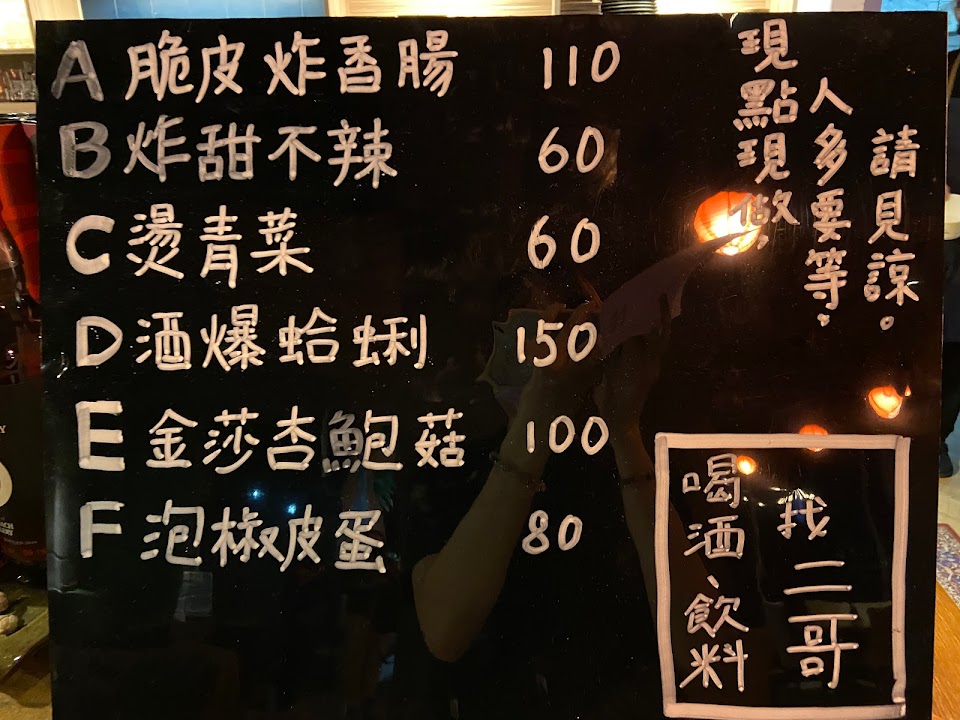 A 脆皮炸香腸 110
B 炸甜不辣 60
C 燙青菜 60
D 酒爆蛤蜊 150
E 金莎杏鮑菇 100
F 泡椒皮蛋 80
現點現做,
人多要等。
請見諒。
喝酒、飲料
找二哥